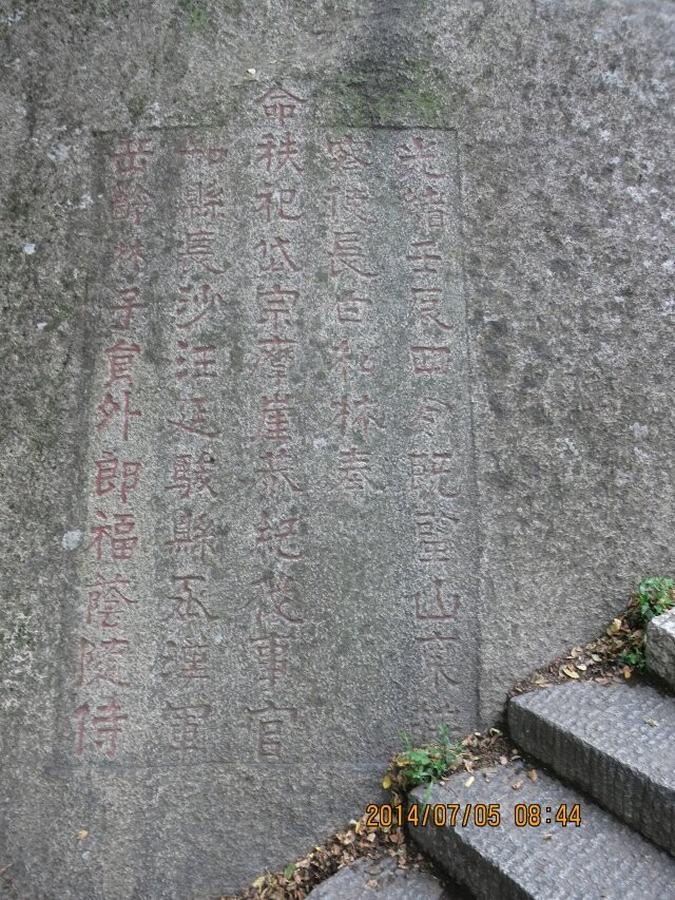 光緒壬辰四月既望山東等
密使長白松林奉
命秩祀岱宗摩崖恭紀從事官
知縣長沙汪廷駿縣丞漢軍
岳齡林子員外郎福蔭隨侍
2014/07/05 08:44